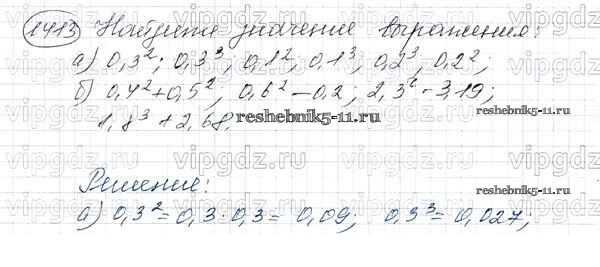 1413 Найдите значение выражения:
а) 0,3²; 0,3³; 0,1²; 0,1³; 0,2³; 0,2²;
б) 0,4²+0,5²; 0,6²-0,2; 2,3²-3,19;
1,8³+2,68.
reshebnik5-11.ru
reshebnik5-11.ru
Решение:
reshebnik5-11.ru
а) 0,3²=0,3·0,3=0,09; 0,3³=0,027;